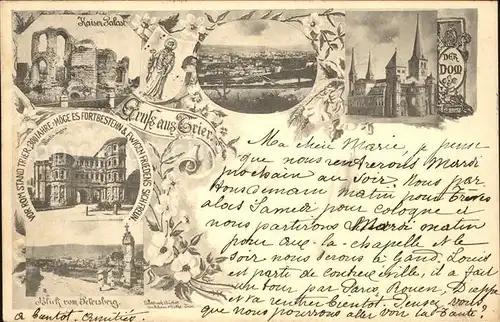 Kaiser Palast
DER DOM
Gruß aus Trier
VOR ROM STAND TRIER 1300 JAHRE - MÖGE ES FORTBESTEHN & EWIGEN FRIEDENS SICH FREUN.
Blick vom Petersberg.
Ma chère Marie, je pense
que nous rentrerons Mardi
prochain au soir. Nous par
tons demain matin pour
alors Samedi pour cologne et
nous partirons Mardi matin
pour aix-la-chapelle et le
soir nous serons à Gand. Louis
est parti de contrexeville, il a fait
un tour par Paris, Rouen, Dieppe
et va rentrer bientot. Pensez vous
que nous pourrons aller voir la Dante?
a bientot. amitiés